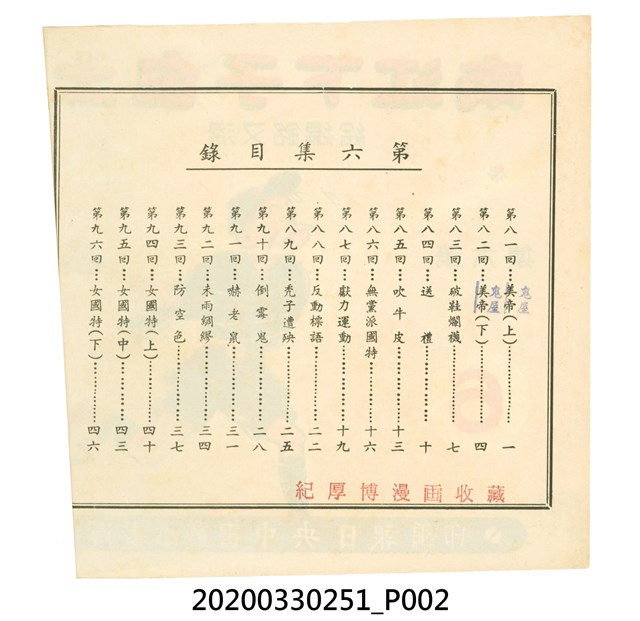 第六集目錄
第八一回…美帝(上)…一
鬼屋
第八二回…美帝(下)…四
鬼屋
第八三回…破鞋爛襪…七
第八四回…送禮…十
第八五回…吹牛皮…十三
第八六回…無黨派國特…十六
第八七回…獻力運動…十九
第八八回…反動標語…二二
第八九回…禿子遭殃…二五
第九十回…倒霉鬼…二八
第九一回…嚇老鼠…三一
第九二回…未雨綢繆…三四
第九三回…防空色…三七
第九四回…女國特(上)…四十
第九五回…女國特(中)…四三
第九六回…女國特(下)…四六
紀厚博漫画收藏
20200330251_P002